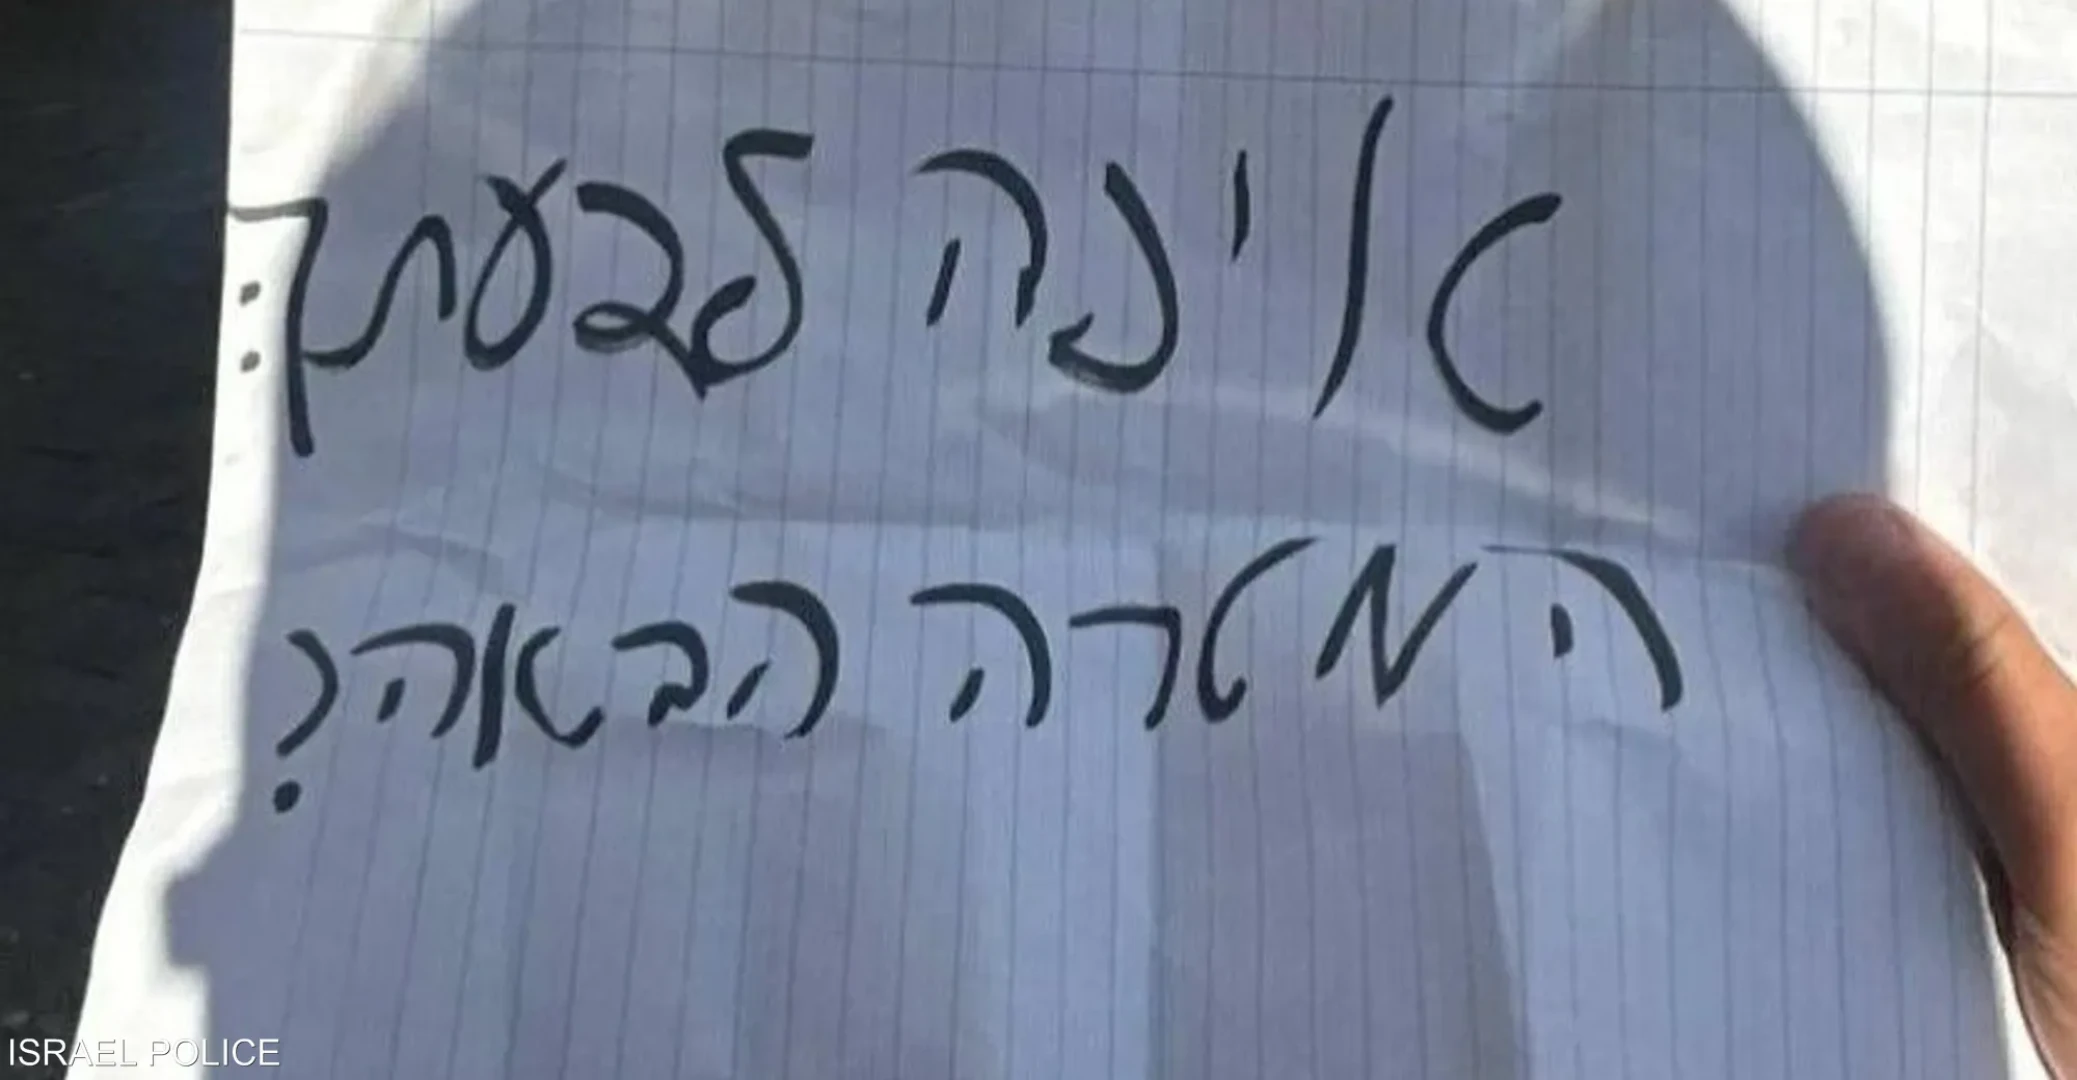 איפה לדעתך:
המטרה הבאה?
ISRAEL POLICE